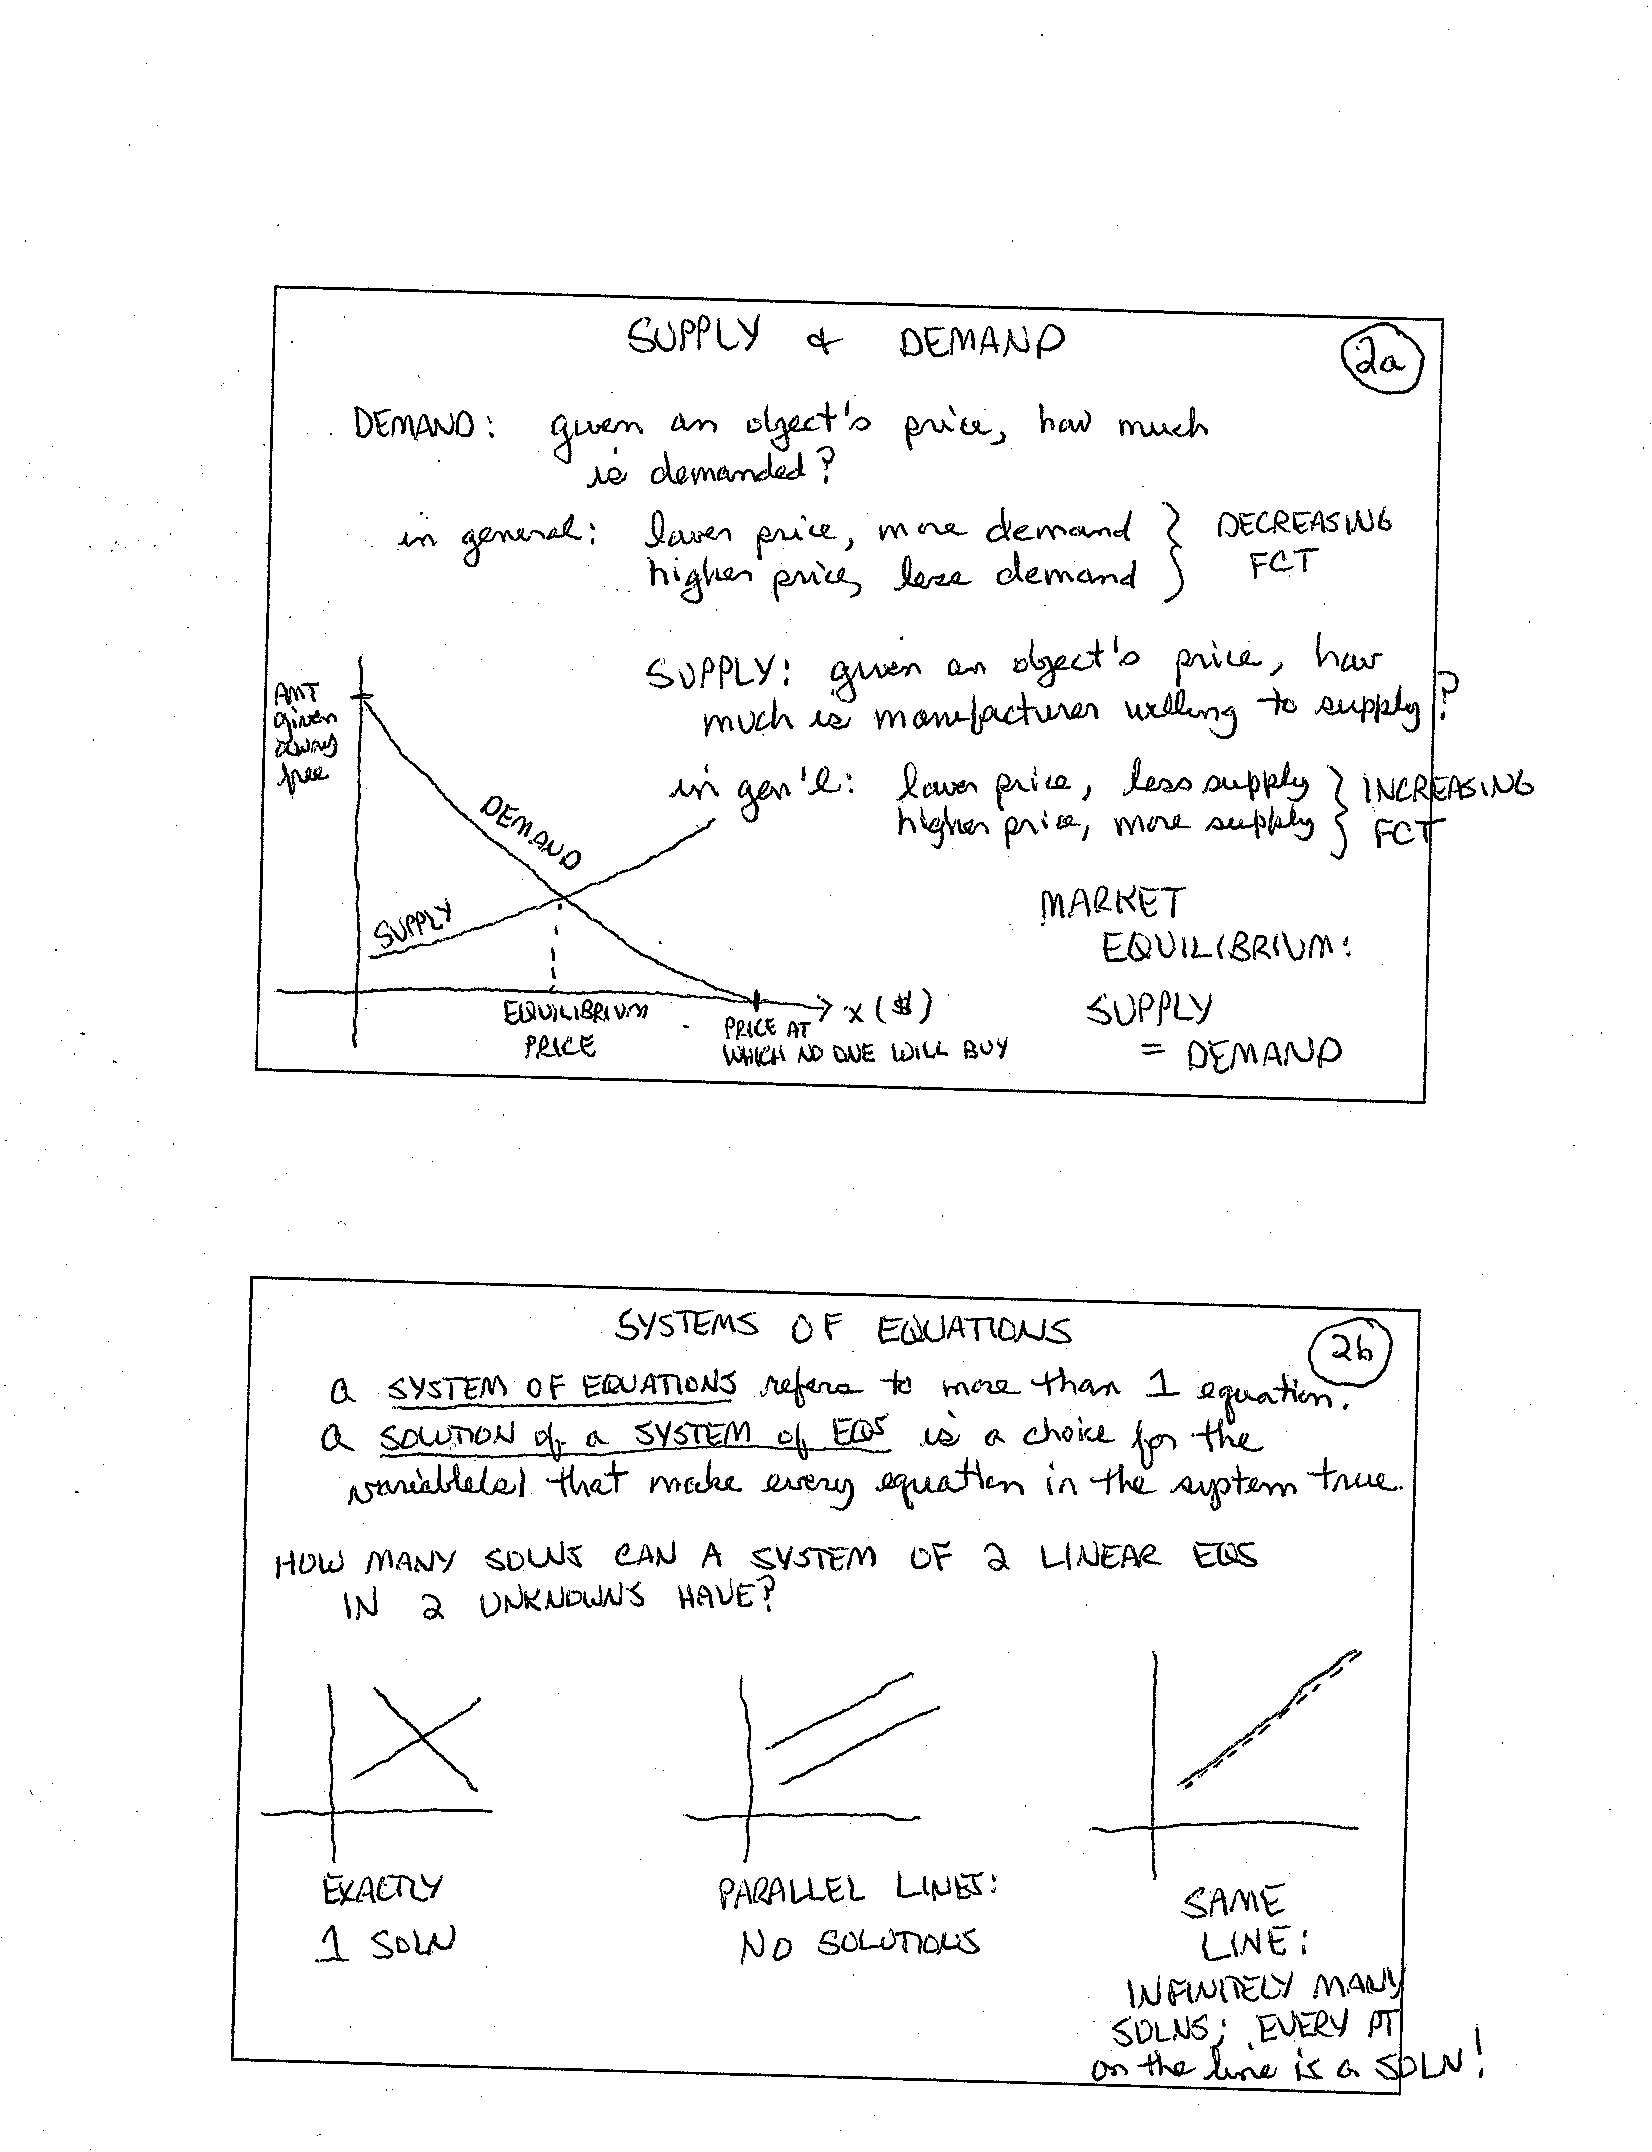 SUPPLY & DEMAND
2a
DEMAND: given an object's price, how much
is demanded?
in general: lower price, more demand } DECREASING
higher price, less demand } FCT
SUPPLY: given an object's price, how
much is manufacturer willing to supply?
in gen'l: lower price, less supply } INCREASING
higher price, more supply } FCT
AMT
given
away
free
DEMAND
SUPPLY
MARKET
EQUILIBRIUM:
SUPPLY
= DEMAND
x ($)
EQUILIBRIUM
PRICE
PRICE AT
WHICH NO ONE WILL BUY
SYSTEMS OF EQUATIONS
2b
a SYSTEM OF EQUATIONS refers to more than 1 equation.
a SOLUTION of a SYSTEM of EQS is a choice for the
variable(s) that make every equation in the system true.
HOW MANY SOLNS CAN A SYSTEM OF 2 LINEAR EQS
IN 2 UNKNOWNS HAVE?
EXACTLY
1 SOLN
PARALLEL LINES:
NO SOLUTIONS
SAME
LINE:
INFINITELY MANY
SOLNS; EVERY PT
on the line is a SOLN!